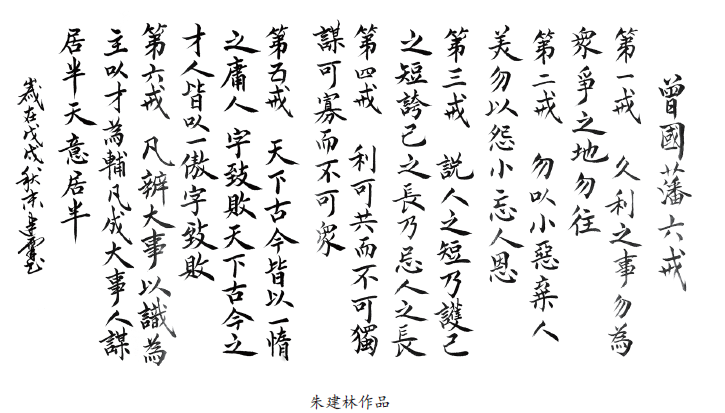 曾國藩六戒
第一戒 久利之事勿為
眾爭之地勿往
第二戒 勿以小惡棄人
美勿以怨小忘人恩
第三戒 説人之短乃護己
之短誇己之長乃忌人之長
第四戒 利可共而不可獨
謀可寡而不可眾
第五戒 天下古今皆以一惰
之庸人 字致敗天下古今之
才人皆以一傲字致敗
第六戒 凡辦大事以識為
主以才為輔凡成大事人謀
居半天意居半
歲在戊戌秋末建
朱建林作品